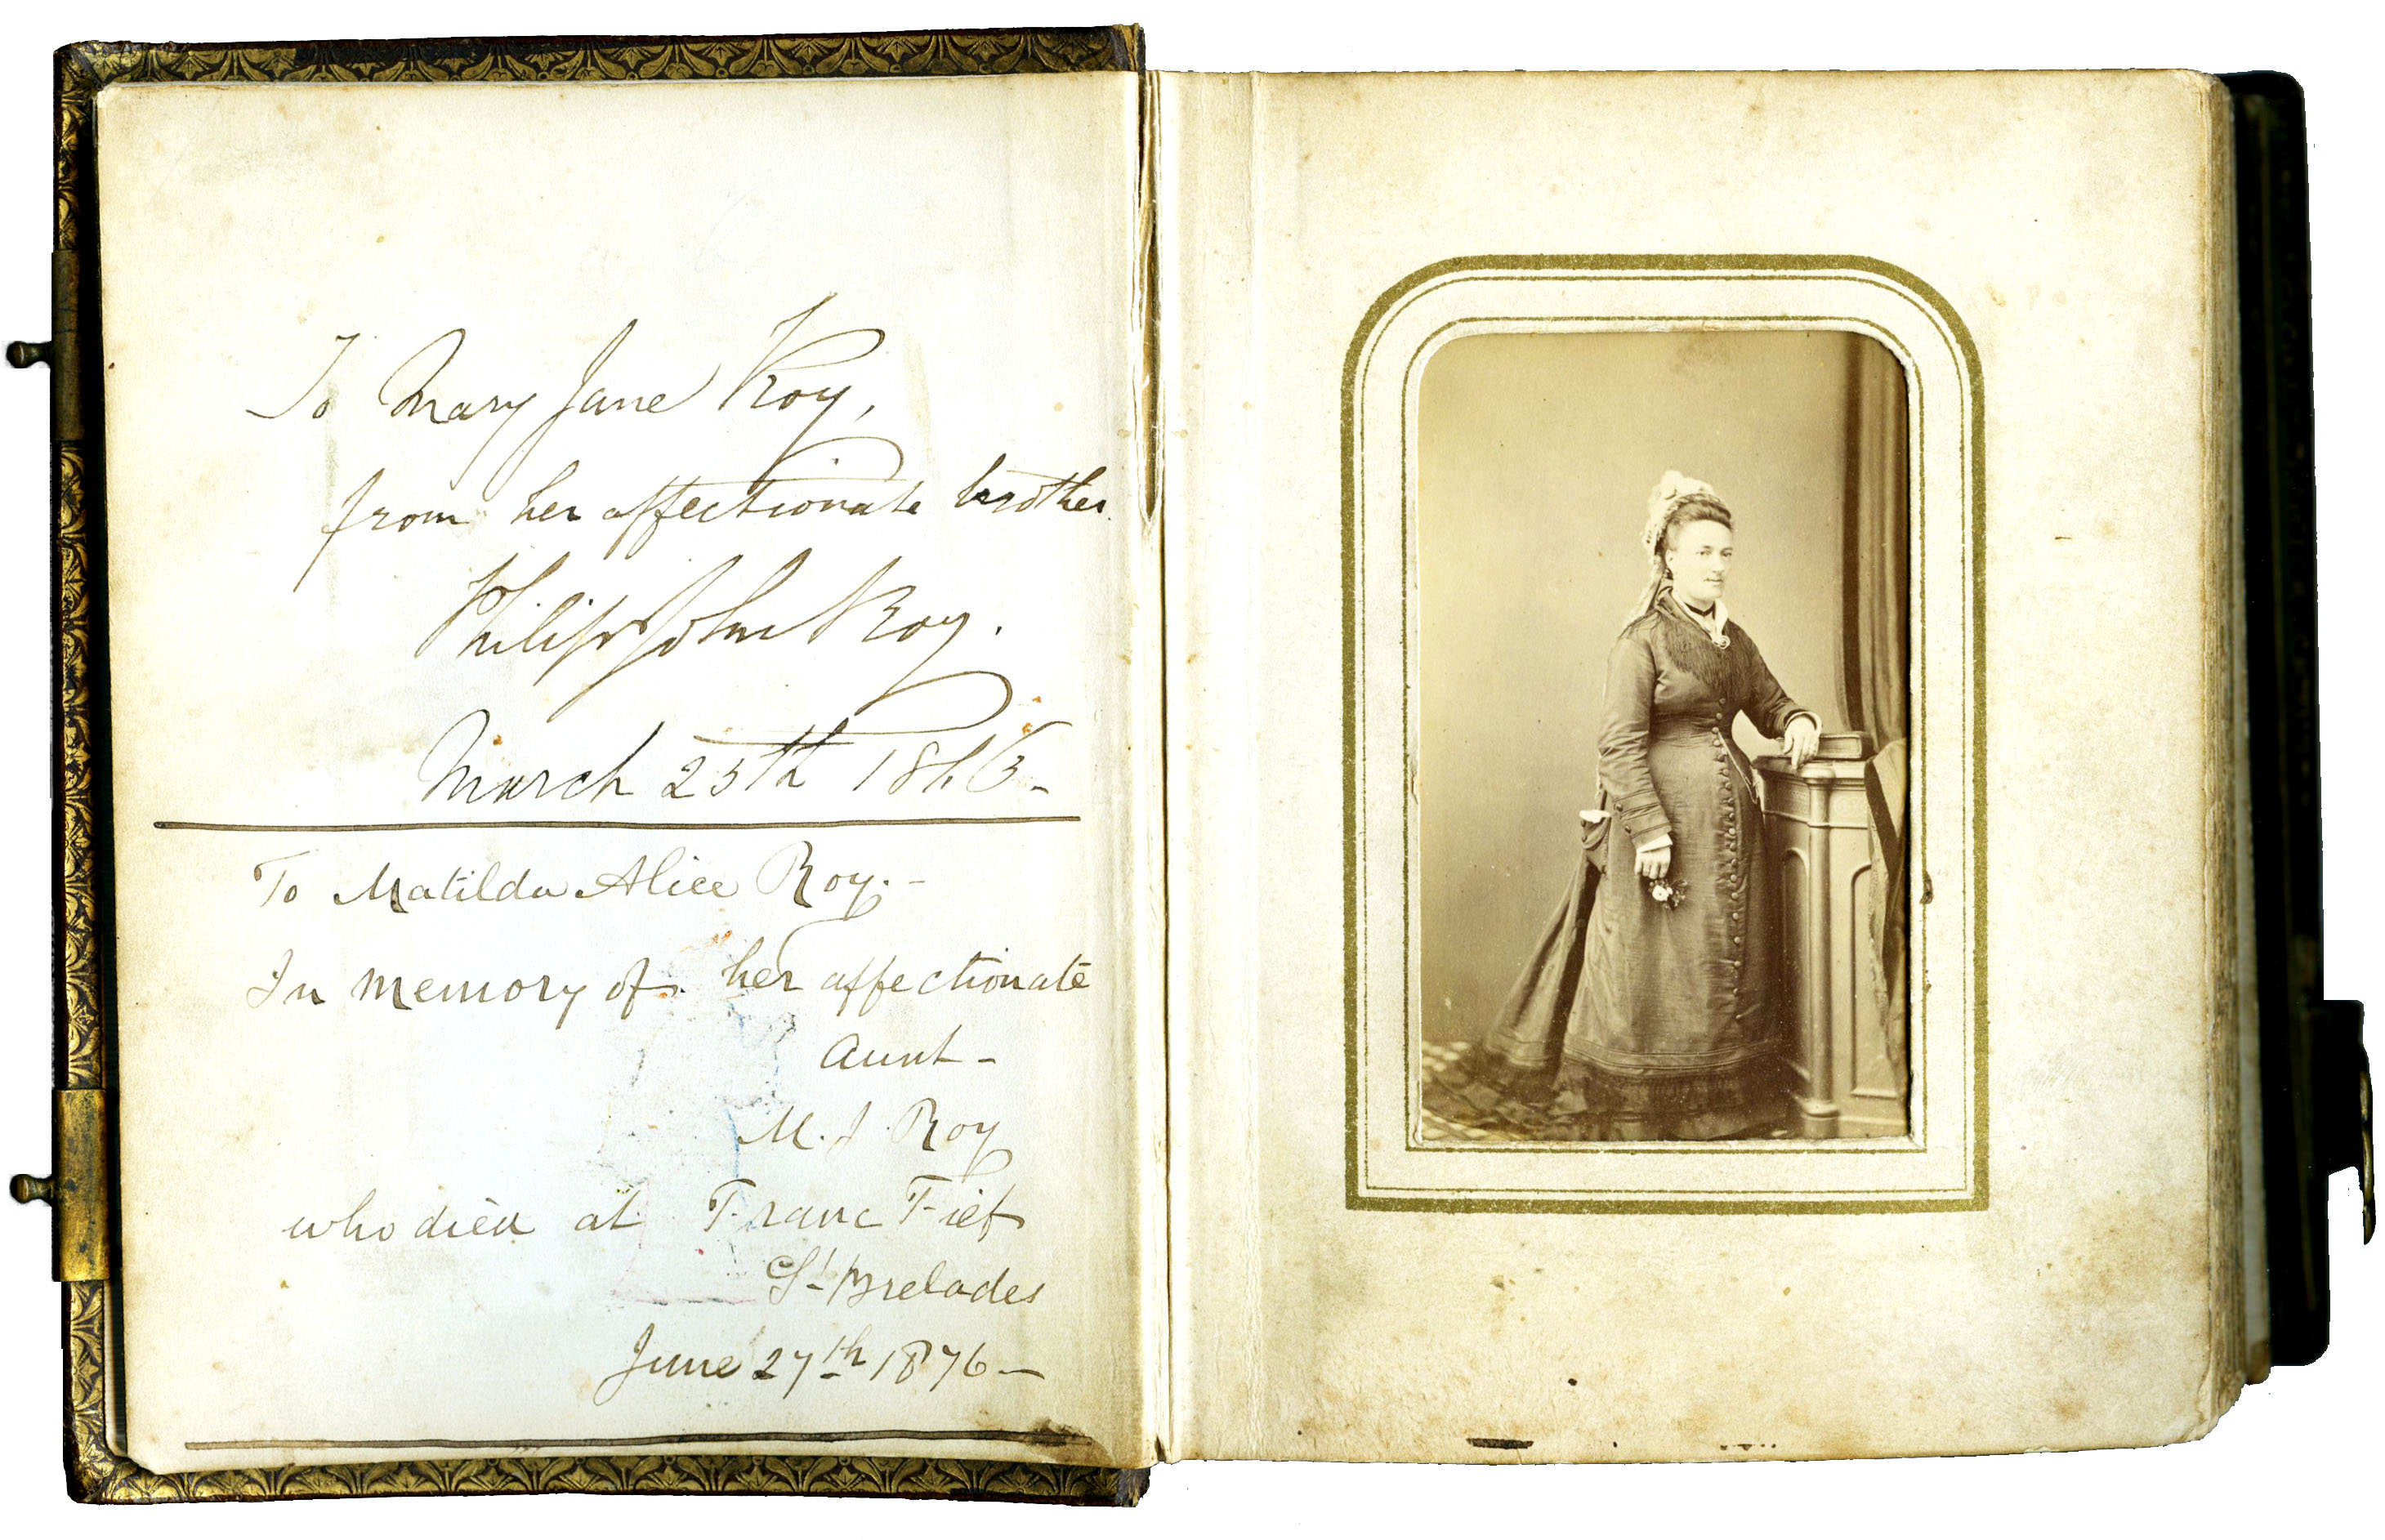 To Mary Jane Roy,
from her affectionate brother
Philip John Roy.
March 25th 1866-
To Matilda Alice Roy.-
In memory of her affectionate
Aunt-
M. J. Roy
who died at Franc Fief
St Brelades
June 27th 1876-